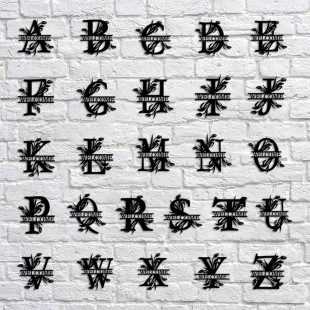 A B C D E
WELCOME WELCOME WELCOME WELCOME WELCOME
F G H I J
WELCOME WELCOME WELCOME WELCOME WELCOME
K L M N O
WELCOME WELCOME WELCOME WELCOME WELCOME
P Q R S T U
WELCOME WELCOME WELCOME WELCOME WELCOME WELCOME
V W X Y Z
WELCOME WELCOME WELCOME WELCOME WELCOME